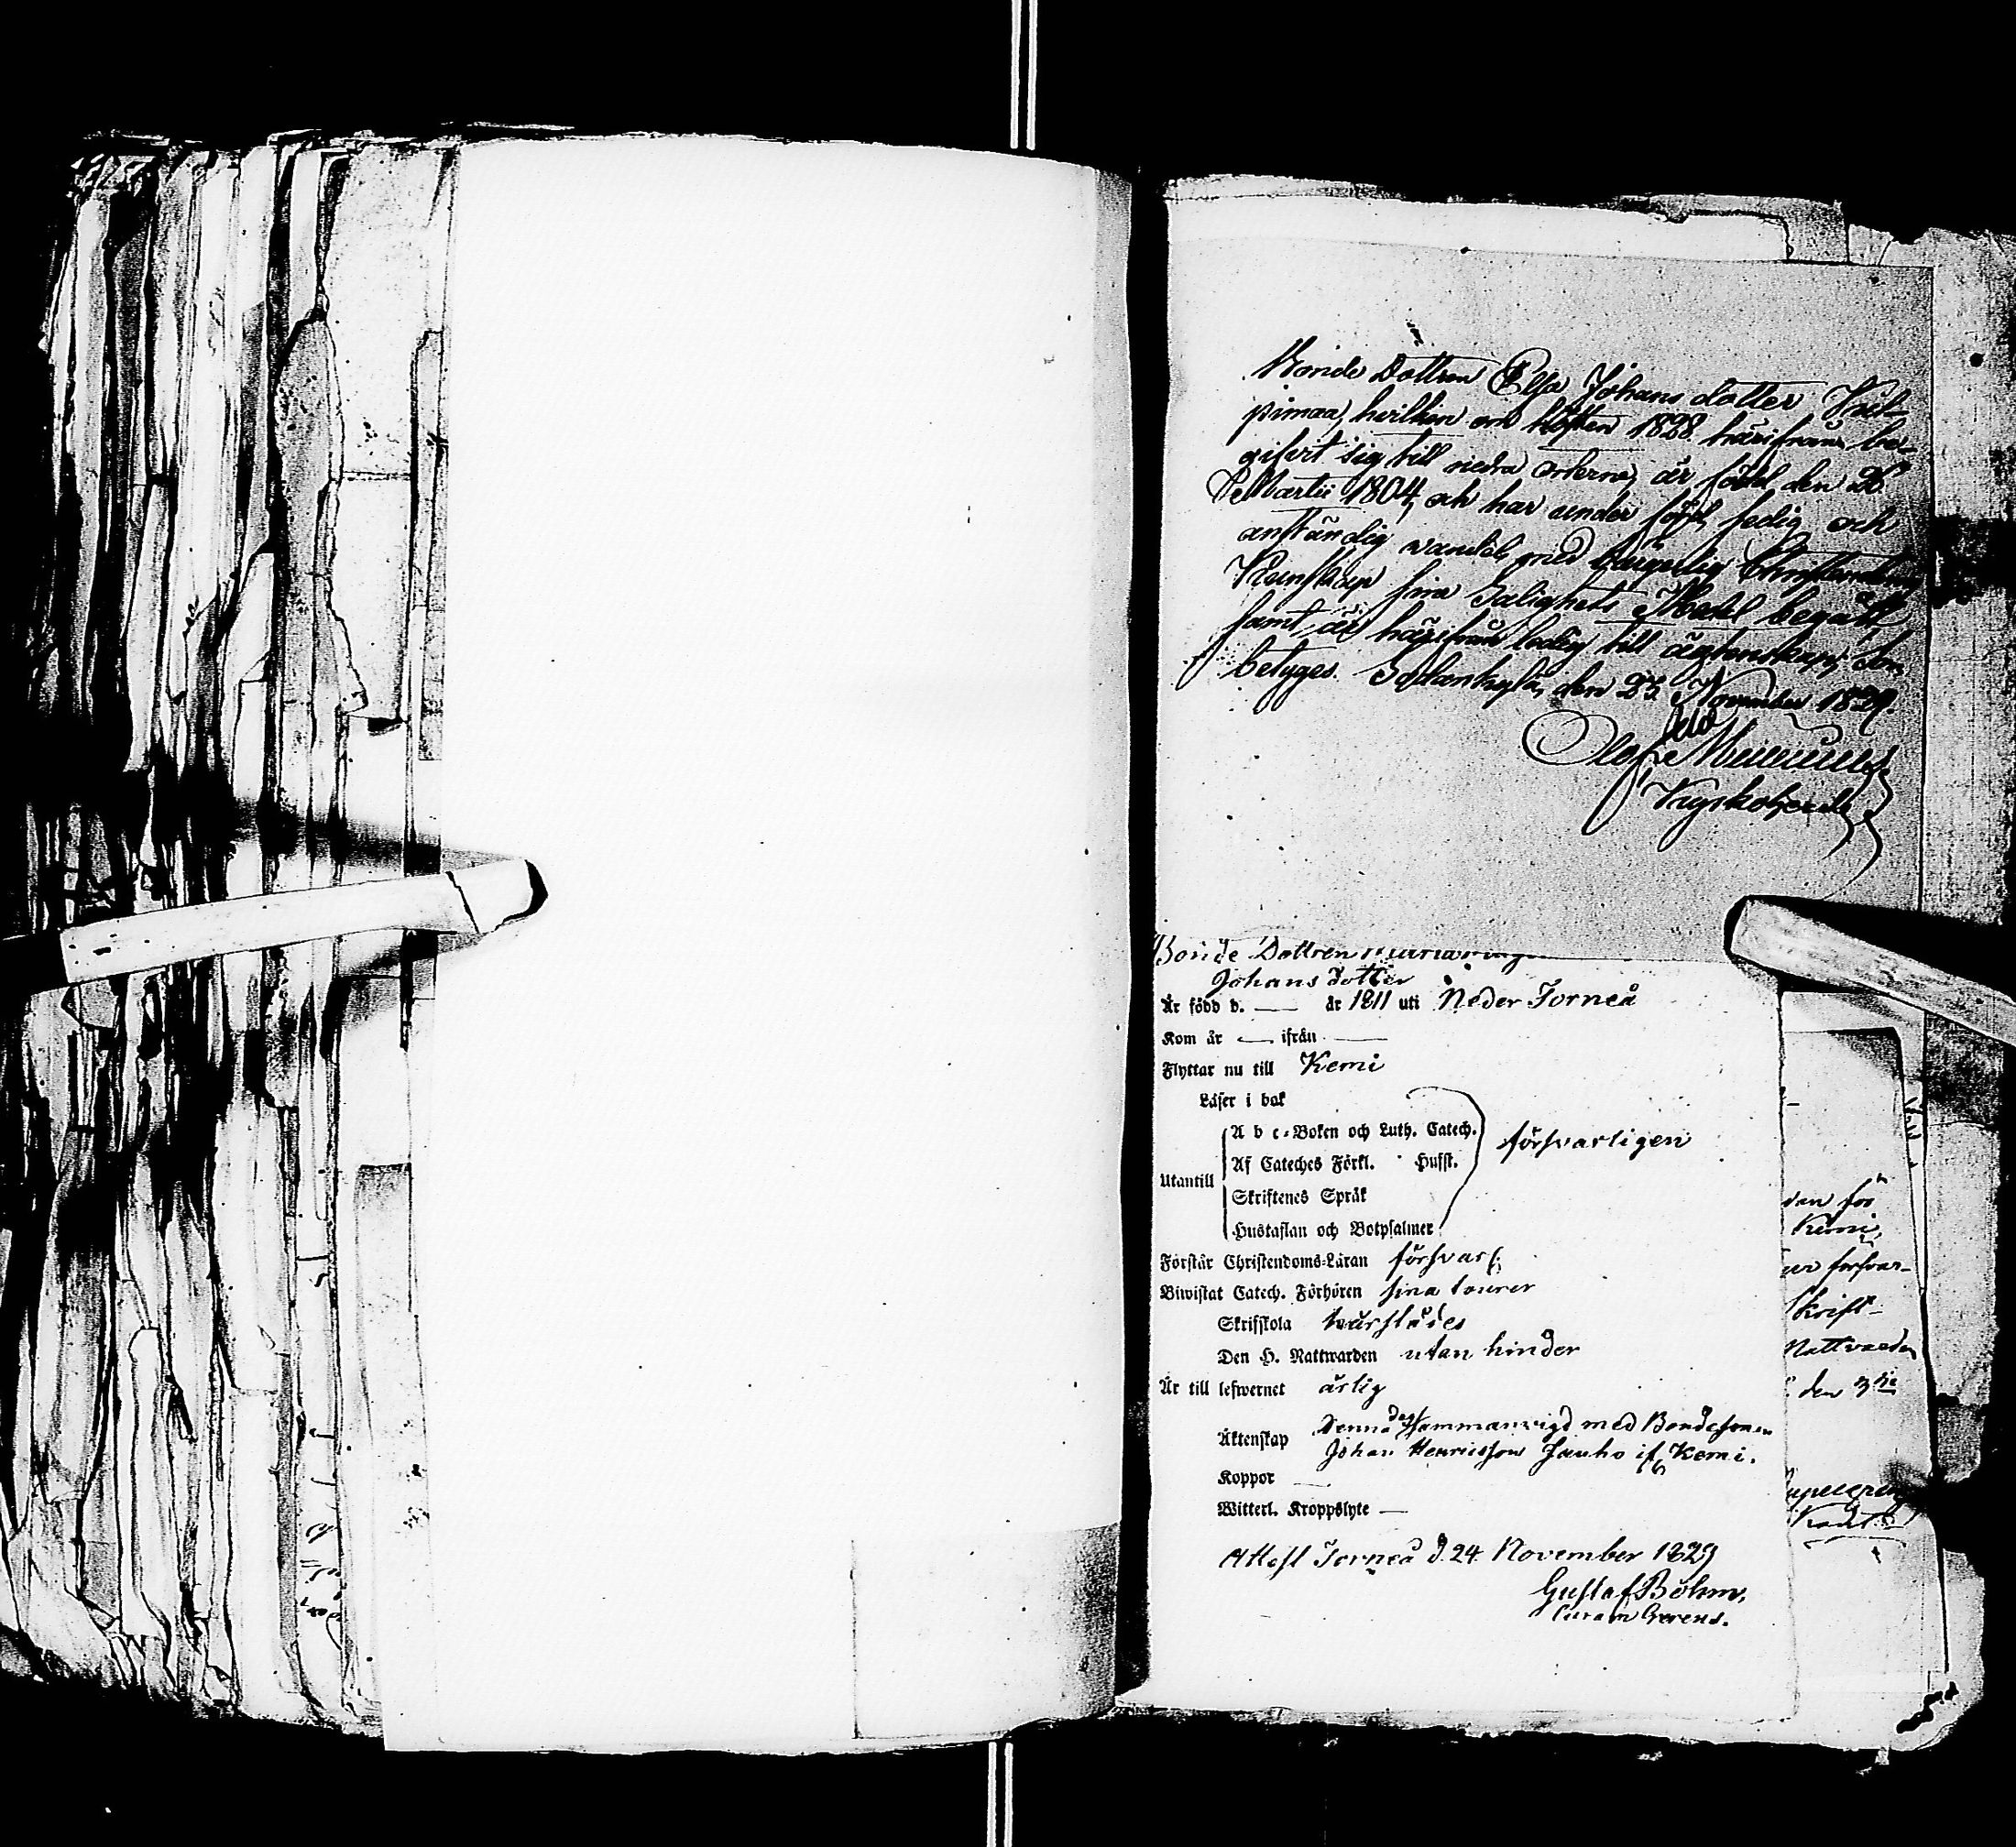 Bonde Dottren Elsa Johans dotter Kuk-
pimaa, hvilken om hösten 1828 härifrån be-
gifvit sig till nedra orterne, är född den 26
Martii 1804, och har under förd, sedig och
anständig vandel med Christendoms
Kunskap sina Salighets Medel begått,
samt är härifrån ledig till ägtenskap, som
betyges. Sodankylä, den 23 November 1829.
Olof
Kyrkoherde
Bonde Dottren
Johans dotter
Är född d. — år 1811 uti Neder Torneå
Kom år — ifrån —
Flyttar nu till Kemi
Läser i bok
Utantill
A b c-Boken och Luth. Catech.
Af Cateches Förkl. Hufst.
Skriftenes Språk
Hustaflan och Botpsalmer
försvarligen
Förstår Christendoms-Läran försvarl.
Biwistat Catech. Förhören sina tourer
Skrifskola härstädes
Den H. Nattwarden utan hinder
Är till lefwernet ärlig
Äktenskap Denna dag sammanvigd med Bondesonen
Johan Henricsson Jauho if. Kemi.
Koppor —
Witterl. Kroppslyte —
Attest Torneå d. 24 November 1829
Gustaf Böhm,
Curam Gerens.
den för
Kemi,
försvar-
Skrift-
Nattvarden
den 3